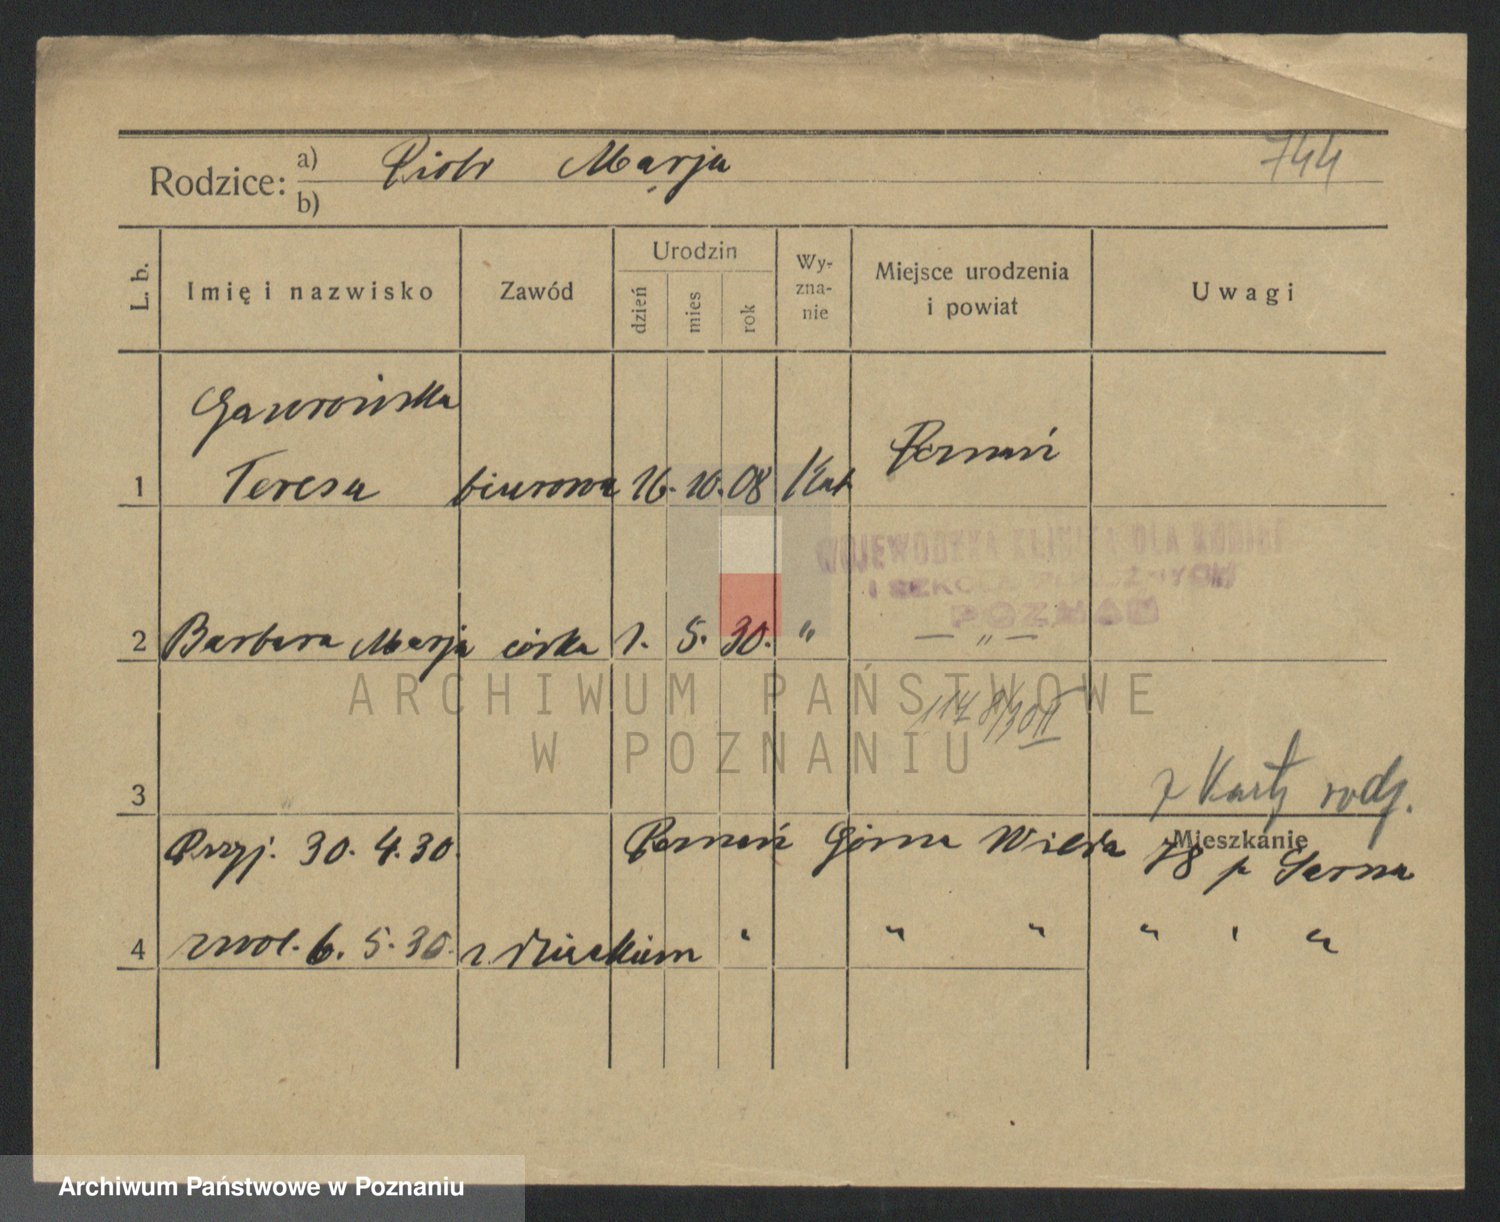 744
Rodzice: a) Piotr Marja
b)
L. b. Imię i nazwisko Zawód Urodzin dzień mies rok Wy-zna-nie Miejsce urodzenia i powiat Uwagi
Gawrońska
1 Teresa biurowa 16. 10. 08 Kat Poznań
WOJEWÓDZKA KLINIKA DLA KOBIET
I SZKOŁA POŁOŻNYCH
POZNAŃ
2 Barbara Marja córka 1. 5. 30. " — " —
ARCHIWUM PAŃSTWOWE
W POZNANIU
3 z Karty rodz.
Mieszkanie
Przyj. 30. 4. 30. Poznań Górna Wilda 78 p Sarna
4 zwol. 6. 5. 30. z dzieckiem " " " " " "
Archiwum Państwowe w Poznaniu